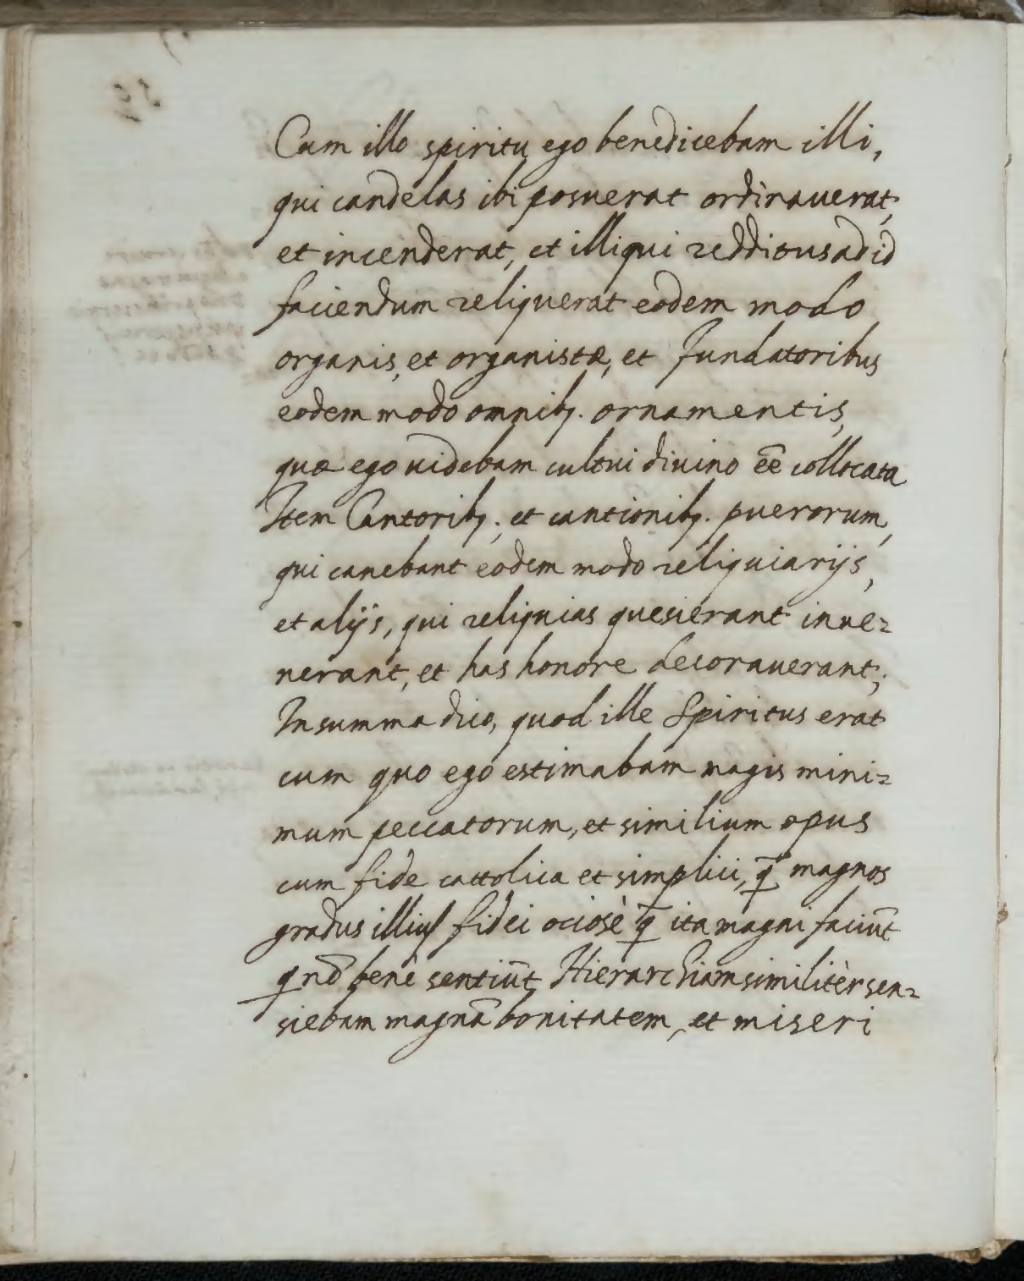 Cum illo spiritu ego benedicebam illi,
qui candelas ibi posuerat ordinauerat,
et incenderat, et illi qui redditus ad id
faciendum reliquerat eodem modo
organis, et organistæ, et fundatoribus
eodem modo omnibꝫ. ornamentis,
quæ ego uidebam cultui diuino ēē collocata
Item Cantoribꝫ. et cantionibꝫ. puerorum,
qui canebant eodem modo reliquiarijs,
et alijs, qui reliquias quesierant inue=
nerant, et has honore decorauerant;
In summa dico, quod ille Spiritus erat
cum quo ego estimabam magis mini=
mum peccatorum, et similium opus
cum fide cattolica et simplici, q̄ magnos
gradus illius fidei ociosè q̄ ita magni faciūt
q nō benè sentiūt Hierarchiam similitèr sen=
siebam magnā bonitatem, et miseri